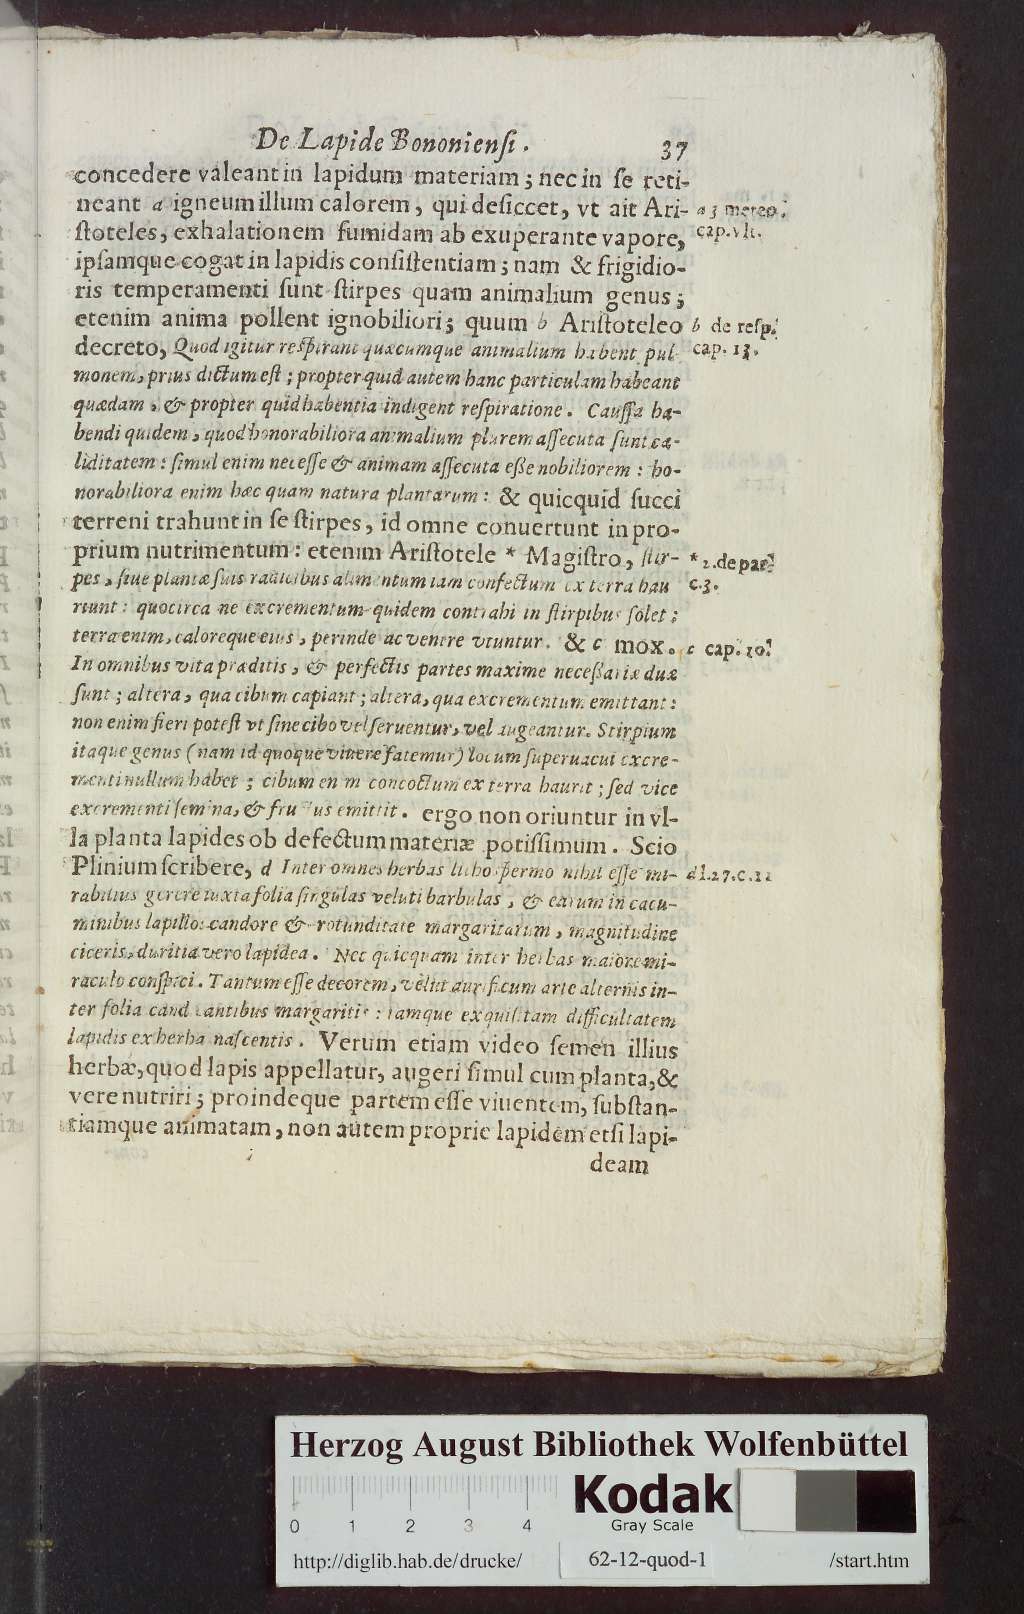 De Lapide Bononiensi. 37
concedere valeant in lapidum materiam; nec in se reti-
neant a igneum illum calorem, qui desiccet, vt ait Ari- a 3 meteo.
stoteles, exhalationem fumidam ab exuperante vapore, cap. vlt.
ipsamque cogat in lapidis consistentiam; nam & frigidio-
ris temperamenti sunt stirpes quam animalium genus;
etenim anima pollent ignobiliori; quum b Aristoteleo b de resp.
decreto, Quod igitur respirant quæcumque animalium habent pul- cap. 13.
monem, prius dictum est; propter quid autem hanc particulam habeant
quædam, & propter quid habentia indigent respiratione. Caussa ha-
bendi quidem, quod honorabiliora animalium plurem assecuta sunt ca-
liditatem: simul enim necesse & animam assecuta eße nobiliorem: ho-
norabiliora enim hæc quam natura plantarum: & quicquid succi
terreni trahunt in se stirpes, id omne conuertunt in pro-
prium nutrimentum: etenim Aristotele * Magistro, stir- * 2. de par.
pes, siue plantæ suis radicibus alimentum iam confectum ex terra hau c. 3.
riunt: quocirca ne excrementum quidem contrahi in stirpibus solet;
terra enim, caloreque eius, perinde ac ventre vtuntur. & c mox. c cap. 10.
In omnibus vita præditis, & perfectis partes maxime neceßariæ duæ
sunt; altera, qua cibum capiant; altera, qua excrementum emittant:
non enim fieri potest vt sine cibo vel seruentur, vel augeantur. Stirpium
itaque genus (nam id quoque viuere fatemur) locum superuacui excre-
menti nullum habet; cibum enim concoctum ex terra haurit; sed vice
excrementi semina, & fructus emittit. ergo non oriuntur in vl-
la planta lapides ob defectum materiæ potissimum. Scio
Plinium scribere, d Inter omnes herbas lithospermo nihil esse mi- d l. 27. c. 11
rabilius gerere iuxta folia singulas veluti barbulas, & earum in cacu-
minibus lapillos candore & rotunditate margaritarum, magnitudine
ciceris, duritia vero lapidea. Nec quicquam inter herbas maiore mi-
raculo conspici. Tantum esse decorem, velut aurificum arte alternis in-
ter folia candicantibus margaritis: tamque exquisitam difficultatem
lapidis ex herba nascentis. Verum etiam video semen illius
herbæ, quod lapis appellatur, augeri simul cum planta, &
vere nutriri; proindeque partem esse viuentem, substan-
tiamque animatam, non autem proprie lapidem etsi lapi-
deam
Herzog August Bibliothek Wolfenbüttel
Kodak
0 1 2 3 4 Gray Scale
http://diglib.hab.de/drucke/ 62-12-quod-1 /start.htm